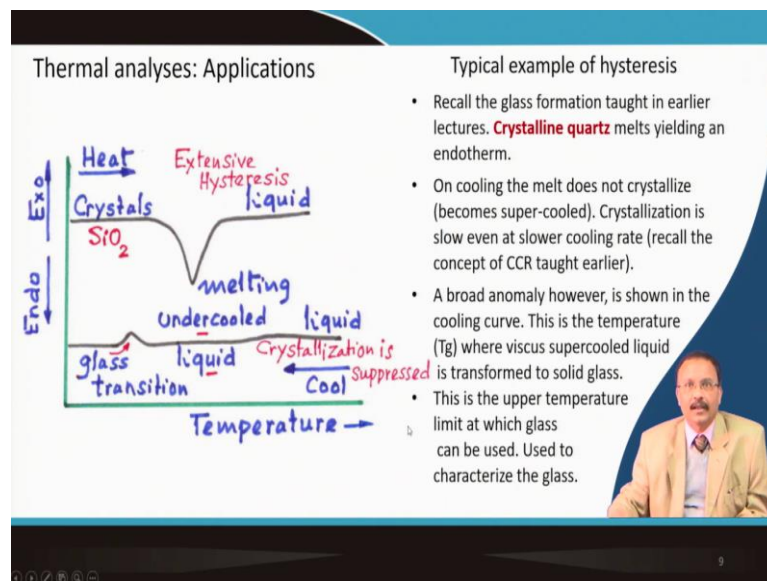 Thermal analyses: Applications
Exo
Endo
Heat
Extensive
Hysteresis
Crystals
liquid
SiO2
melting
undercooled
liquid
glass
transition
liquid
Crystallization is
suppressed
Cool
Temperature
Typical example of hysteresis
• Recall the glass formation taught in earlier
lectures. Crystalline quartz melts yielding an
endotherm.
• On cooling the melt does not crystallize
(becomes super-cooled). Crystallization is
slow even at slower cooling rate (recall the
concept of CCR taught earlier).
• A broad anomaly however, is shown in the
cooling curve. This is the temperature
(Tg) where viscus supercooled liquid
is transformed to solid glass.
• This is the upper temperature
limit at which glass
can be used. Used to
characterize the glass.
9